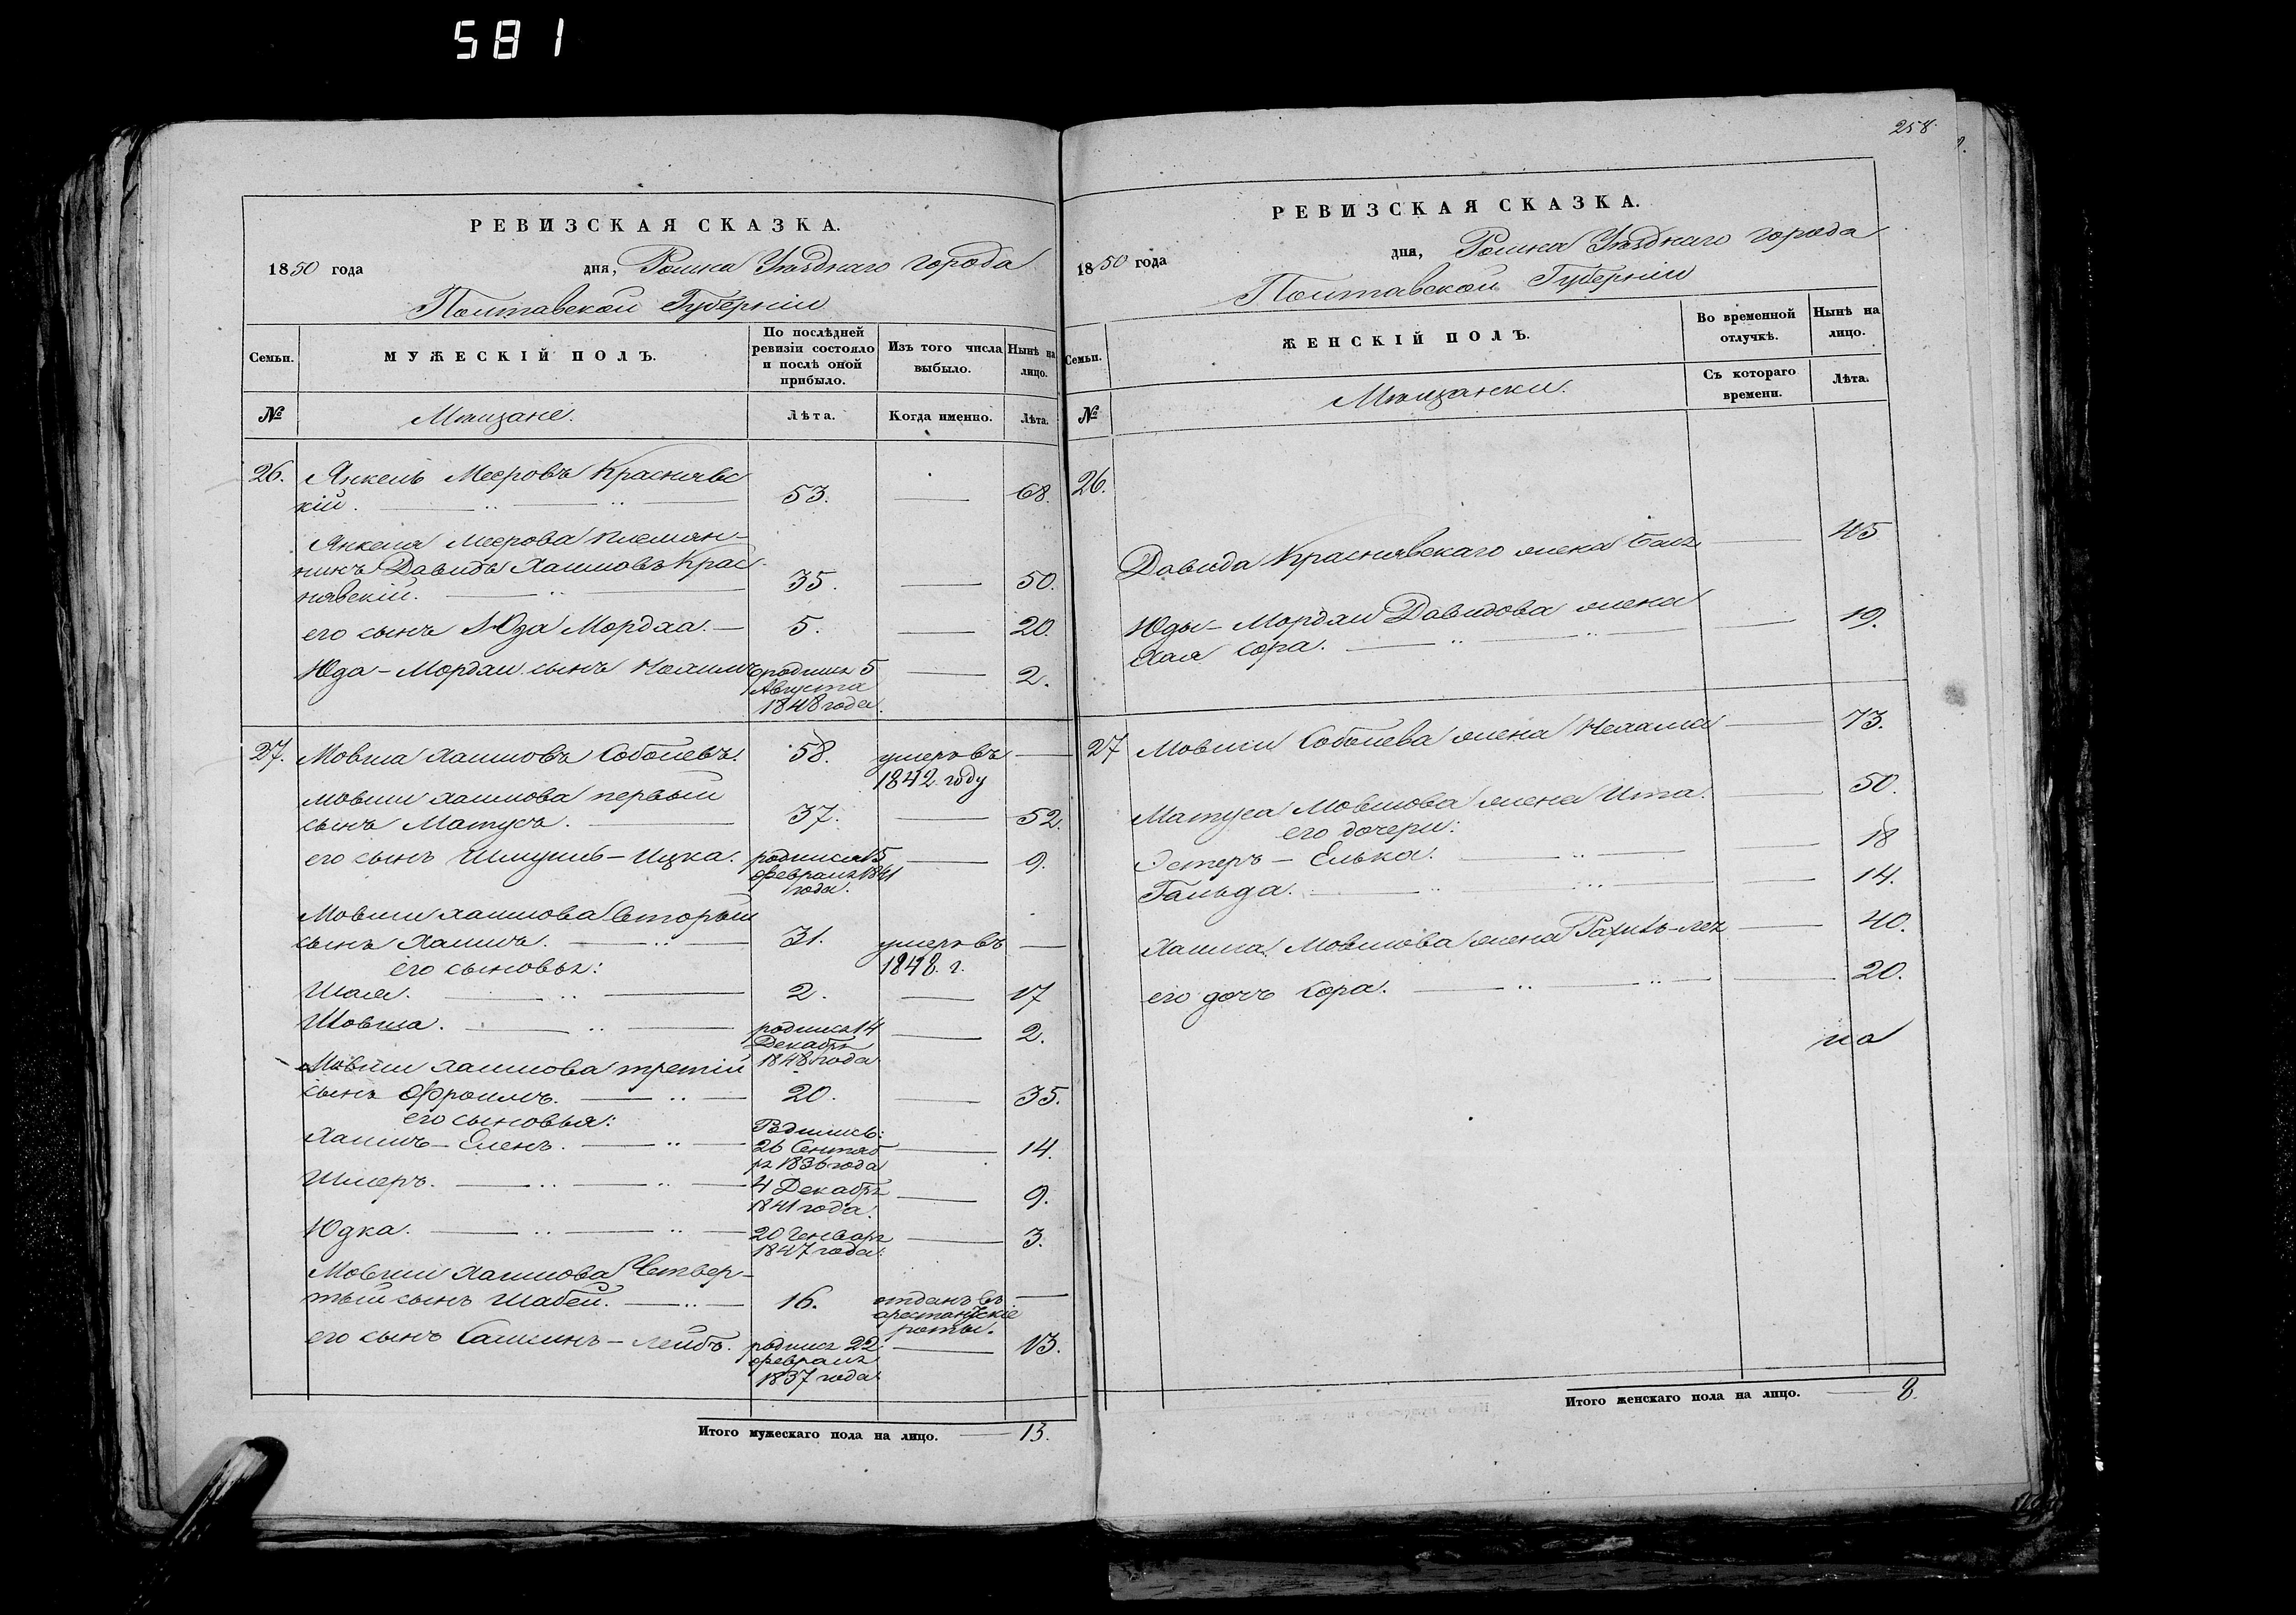 581
258.
РЕВИЗСКАЯ СКАЗКА.
1850 года дня, Ромна Уѣзднаго города
Полтавской Губерніи
Семьи.
МУЖЕСКІЙ ПОЛЪ.
По послѣдней ревизіи состояло и послѣ оной прибыло.
Изъ того числа выбыло.
Нынѣ на лицо.
№ Мѣщане. Лѣта. Когда именно. Лѣта.
26. Янкель Мееровъ Краснявс
кій. 53. 68.
Янкеля Меерова племян-
никъ Давидъ Хаимовъ Крас-
нявскій. 35. 50.
его сынъ Юда Мордха. 5. 20.
Юда-Мордхи сынъ родился 5 2.
Августа
1848 года.
27. Мовша Хаимовъ Соболевъ. 58. умеръ въ
1842 году
Мовши Хаимова первый
сынъ Матусъ. 37. 52.
его сынъ Шмуиль-Ицка. родился 15 9.
февраля 1841
года.
Мовши Хаимова вторый
сынъ Хаимъ. 31. умеръ въ
1848. г.
его сыновья:
Шая. 2. 17
Мовша. родился 14 2.
Декабря
1848 года
Мовши Хаимова третій
сынъ Фроимъ. 20. 35.
его сыновья: Родились:
Хаимъ- 26 Сентяб 14.
ря 1836 года
Шмеръ. 4 Декабря 9.
1841 года.
Юдка. 20 Генваря 3.
1847 года.
Мовши Хаимова Четвер-
тый сынъ Шабей. 16. отданъ въ
арестантскіе
роты.
его сынъ -Лейбъ. родился 22 13.
февраля
1837 года
Итого мужескаго пола на лицо. 13.
РЕВИЗСКАЯ СКАЗКА.
1850 года дня, Ромна Уѣзднаго города
Полтавской Губерніи
Семьи.
ЖЕНСКІЙ ПОЛЪ.
Во временной отлучкѣ.
Нынѣ на лицо.
Съ котораго времени.
Лѣта.
№ Мѣщанки.
26.
Давида Краснявскаго жена 45
Юды-Мордхи Давидова жена
Хая Сора. 19.
27 Мовши Соболева жена Нехама 73.
Матуса Мовшова жена Ита. 50.
его дочери:
Эстеръ-Елька. 18
Гольда. 14.
Хаима Мовшова жена 40.
его дочь Сора. 20.
Итого женскаго пола на лицо. 8.